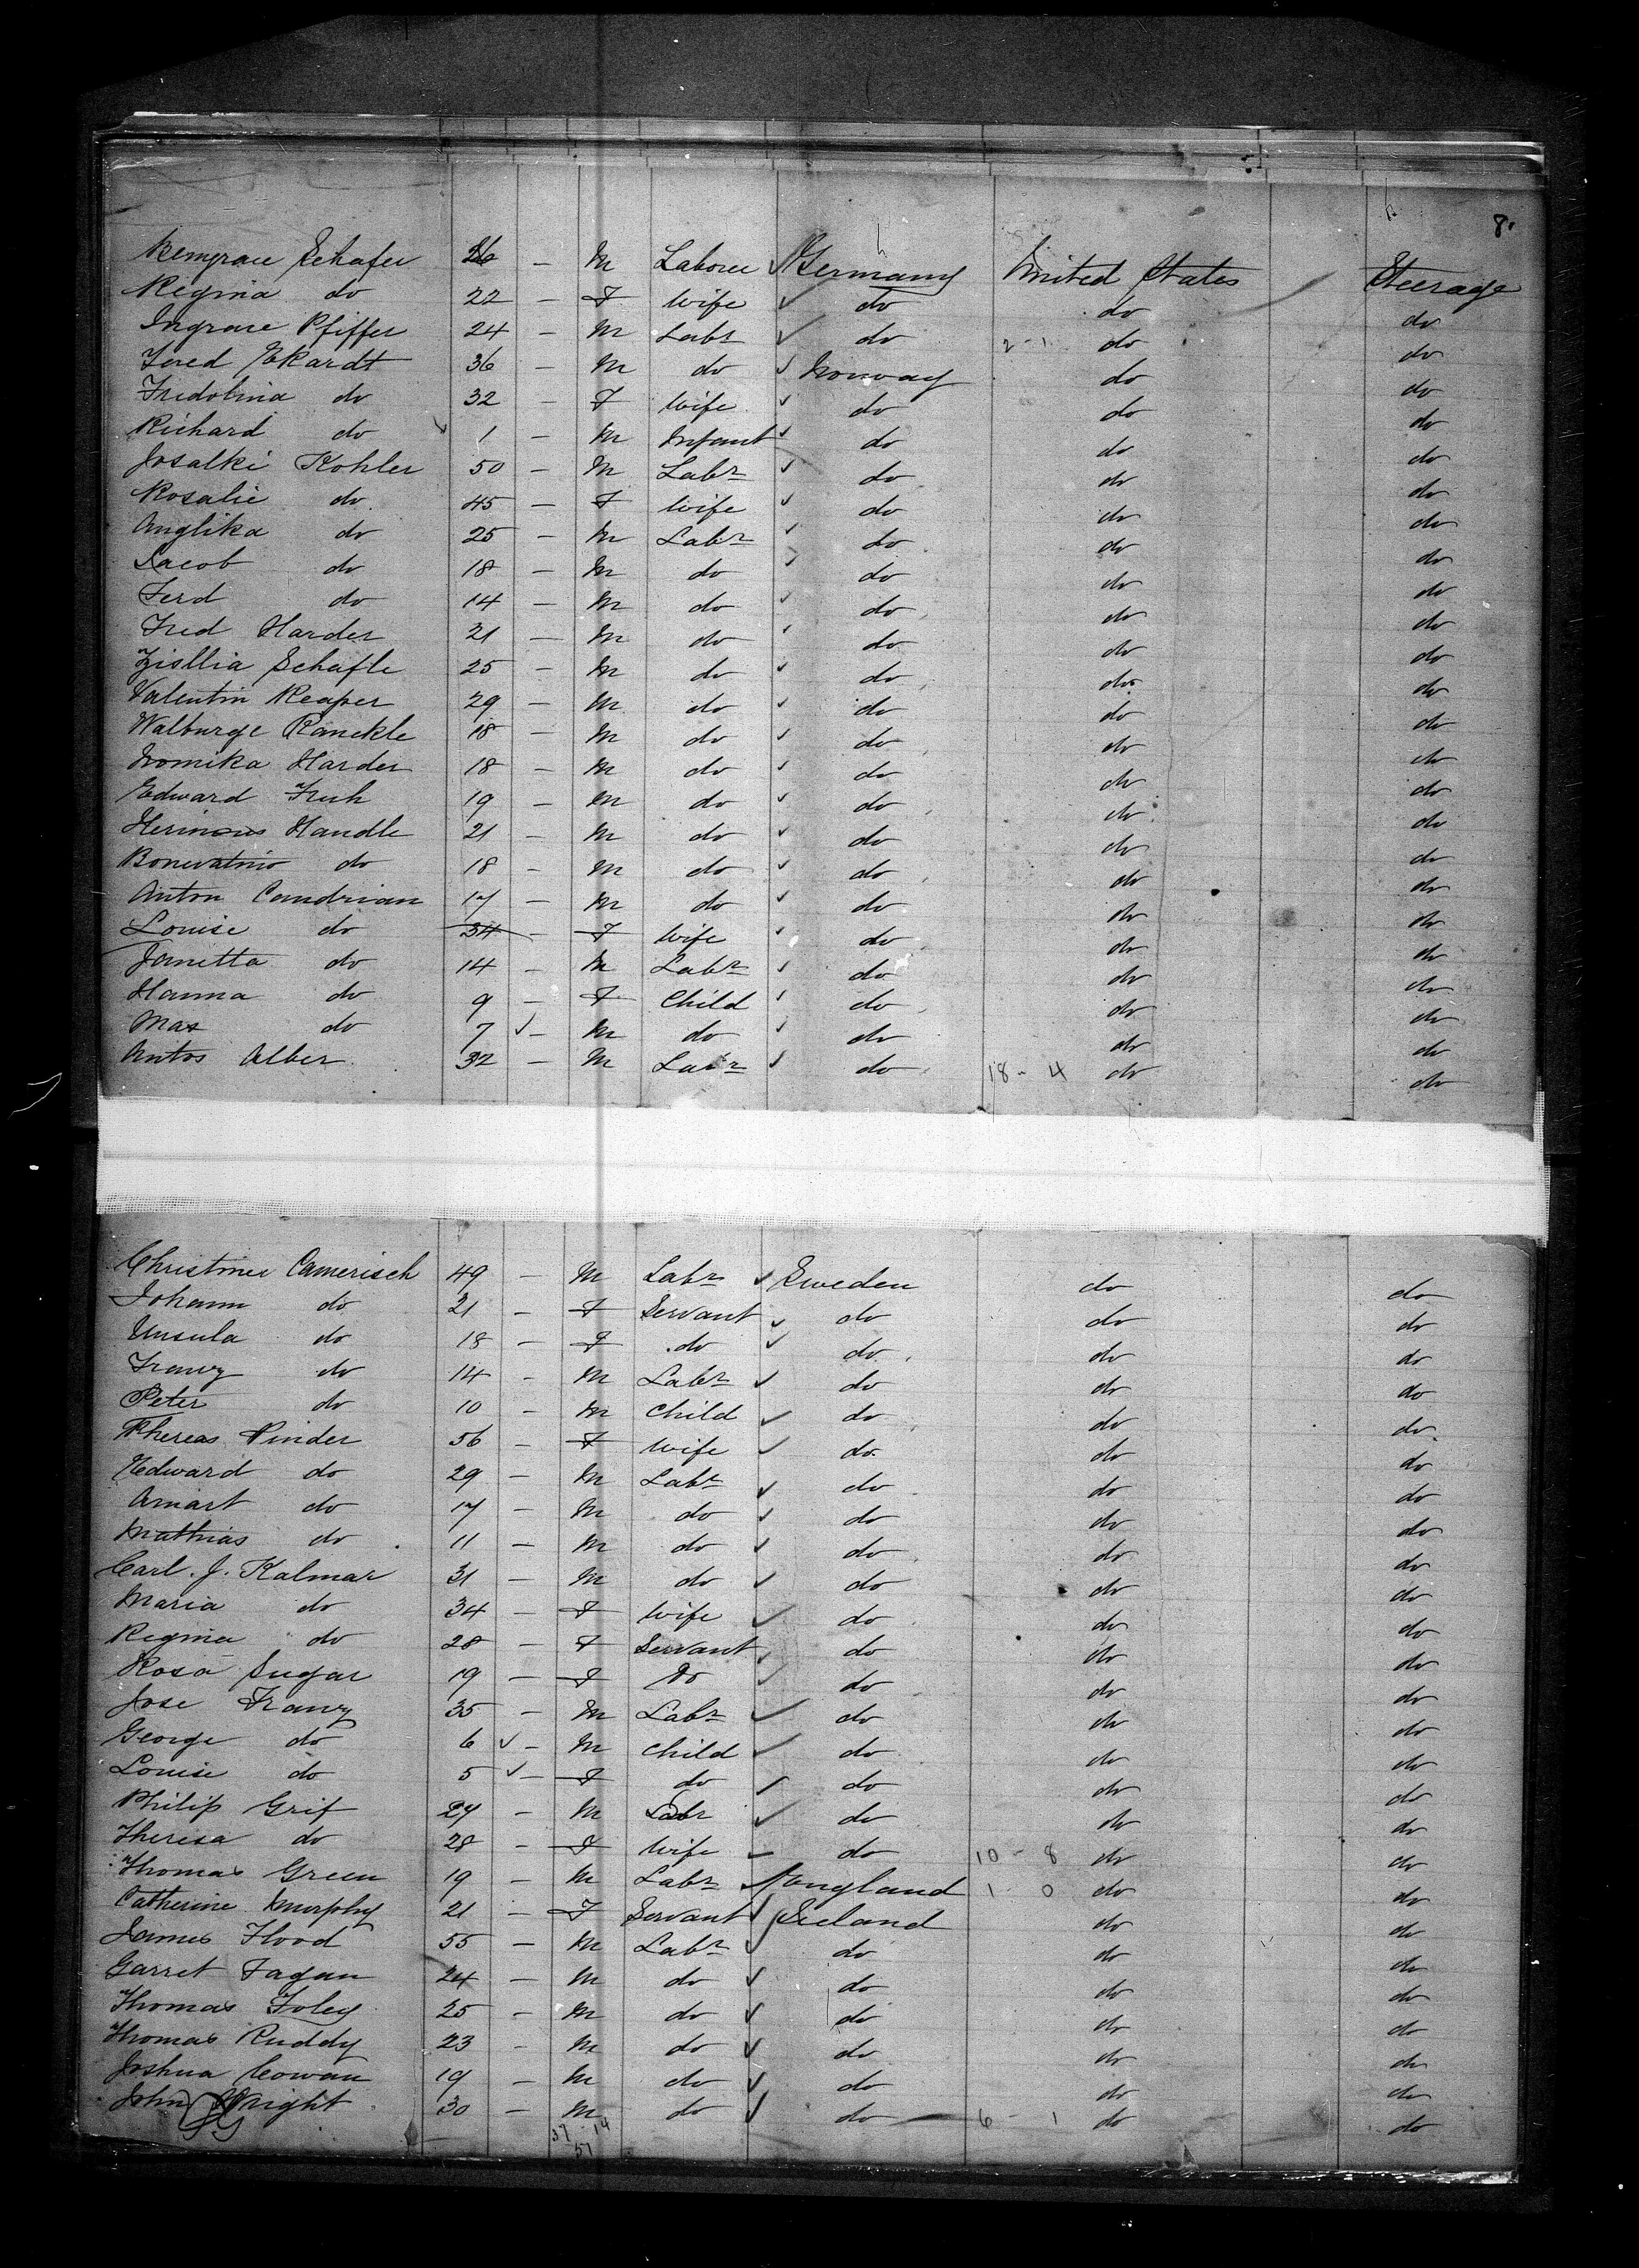 8.
Remgrace Schafer 26 - M Laborer ✓ Germany United States Steerage
Regina do 22 - F Wife ✓ do do do
Ingrace Pfiffer 24 - M Labr ✓ do 2-1 do do
Fered Ekardt 36 - M do ✓ Norway do do
Fridolina do 32 - F Wife ✓ do do do
Richard do 1 - M Infant ✓ do do do
Josalki Kohler 50 - M Labr ✓ do do do
Rosalie do 45 - F Wife ✓ do do do
Anglika do 25 - M Labr ✓ do do do
Jacob do 18 - M do ✓ do do do
Ferd do 14 - M do ✓ do do do
Fred Harder 21 - M do ✓ do do do
Zisllia Schafle 25 - M do ✓ do do do
Valentin Reaper 29 - M do ✓ do do do
Walburge Ranckle 18 - M do ✓ do do do
Nomika Harder 18 - M do ✓ do do do
Edward Fruh 19 - M do ✓ do do do
Herinous Handle 21 - M do ✓ do do do
Bonevatnio do 18 - M do ✓ do do do
Anton Candrian 17 - M do ✓ do do do
Louise do 34 - F Wife ✓ do do do
Janetta do 14 - M Labr ✓ do do do
Hanna do 9 - F Child ✓ do do do
Max do 7 ✓ - M do ✓ do do do
Antos Alber 32 - M Labr ✓ do 18-4 do do
Christines Camerisch 49 - M Labr ✓ Sweden do do
Johann do 21 - F Servant ✓ do do do
Ursula do 18 - F do ✓ do do do
Franz do 14 - M Labr ✓ do do do
Peter do 10 - M Child ✓ do do do
Thereas Pinder 56 - F Wife ✓ do do do
Edward do 29 - M Labr ✓ do do do
Amart do 17 - M do ✓ do do do
Mathias do 11 - M do ✓ do do do
Carl. J. Kalmar 31 - M do ✓ do do do
Maria do 34 - F Wife ✓ do do do
Regina do 28 - F Servant ✓ do do do
Rosa Sugar 19 - F Do ✓ do do do
Jose Franz 35 - M Labr ✓ do do do
George do 6 ✓ - M Child ✓ do do do
Louise do 5 ✓ - F do ✓ do do do
Philip Grif 27 - M Labr ✓ do do do
Theresa do 28 - F Wife ✓ do 10-8 do do
Thomas Green 19 - M Labr ✓ England 1-0 do do
Catherine Murphy 21 - F Servant ✓ Ireland do do
James Flood 55 - M Labr ✓ do do do
Garret Fagan 24 - M do ✓ do do do
Thomas Foley 25 - M do ✓ do do do
Thomas Ruddy 23 - M do ✓ do do do
Joshua Cowan 19 - M do ✓ do do do
John Wright 30 - M do ✓ do 6-1 do do
37-14
51